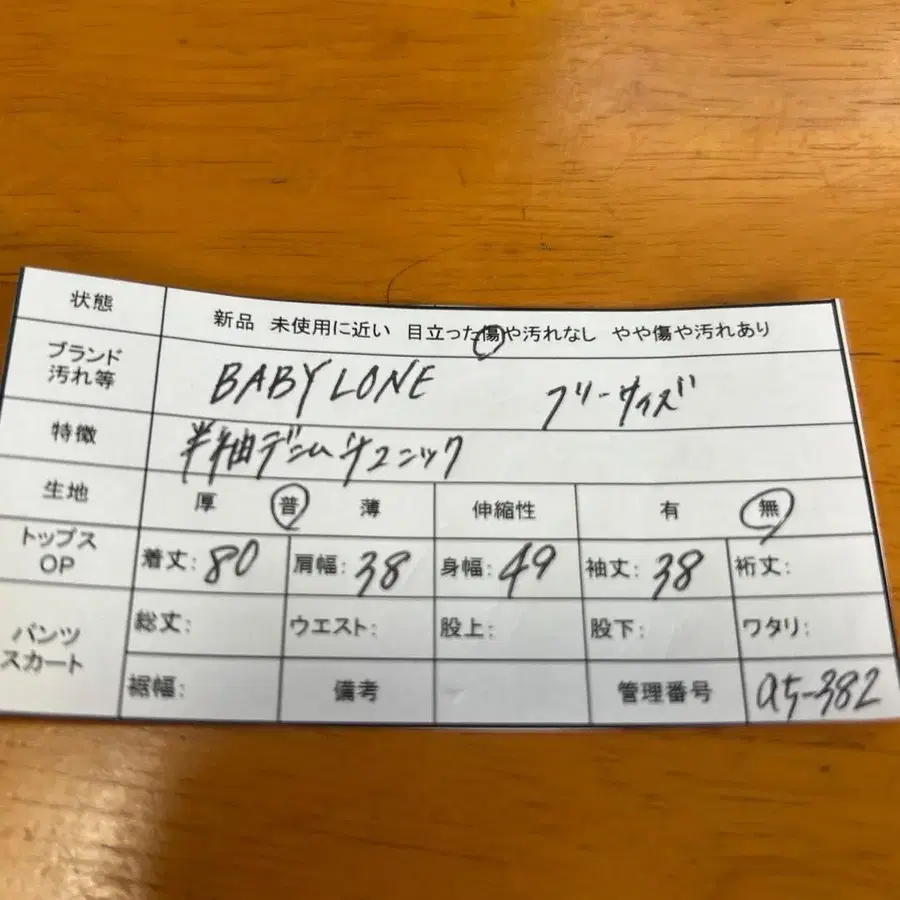 状態 新品 未使用に近い 目立った傷や汚れなし やや傷や汚れあり
ブランド
汚れ等 BABYLONE フリーサイズ
特徴 半袖デニムチュニック
生地 厚 普 薄 伸縮性 有 無
トップス
OP 着丈:80 肩幅:38 身幅:49 袖丈:38 裄丈:
パンツ
スカート 総丈: ウエスト: 股上: 股下: ワタリ:
裾幅: 備考 管理番号 a5-382